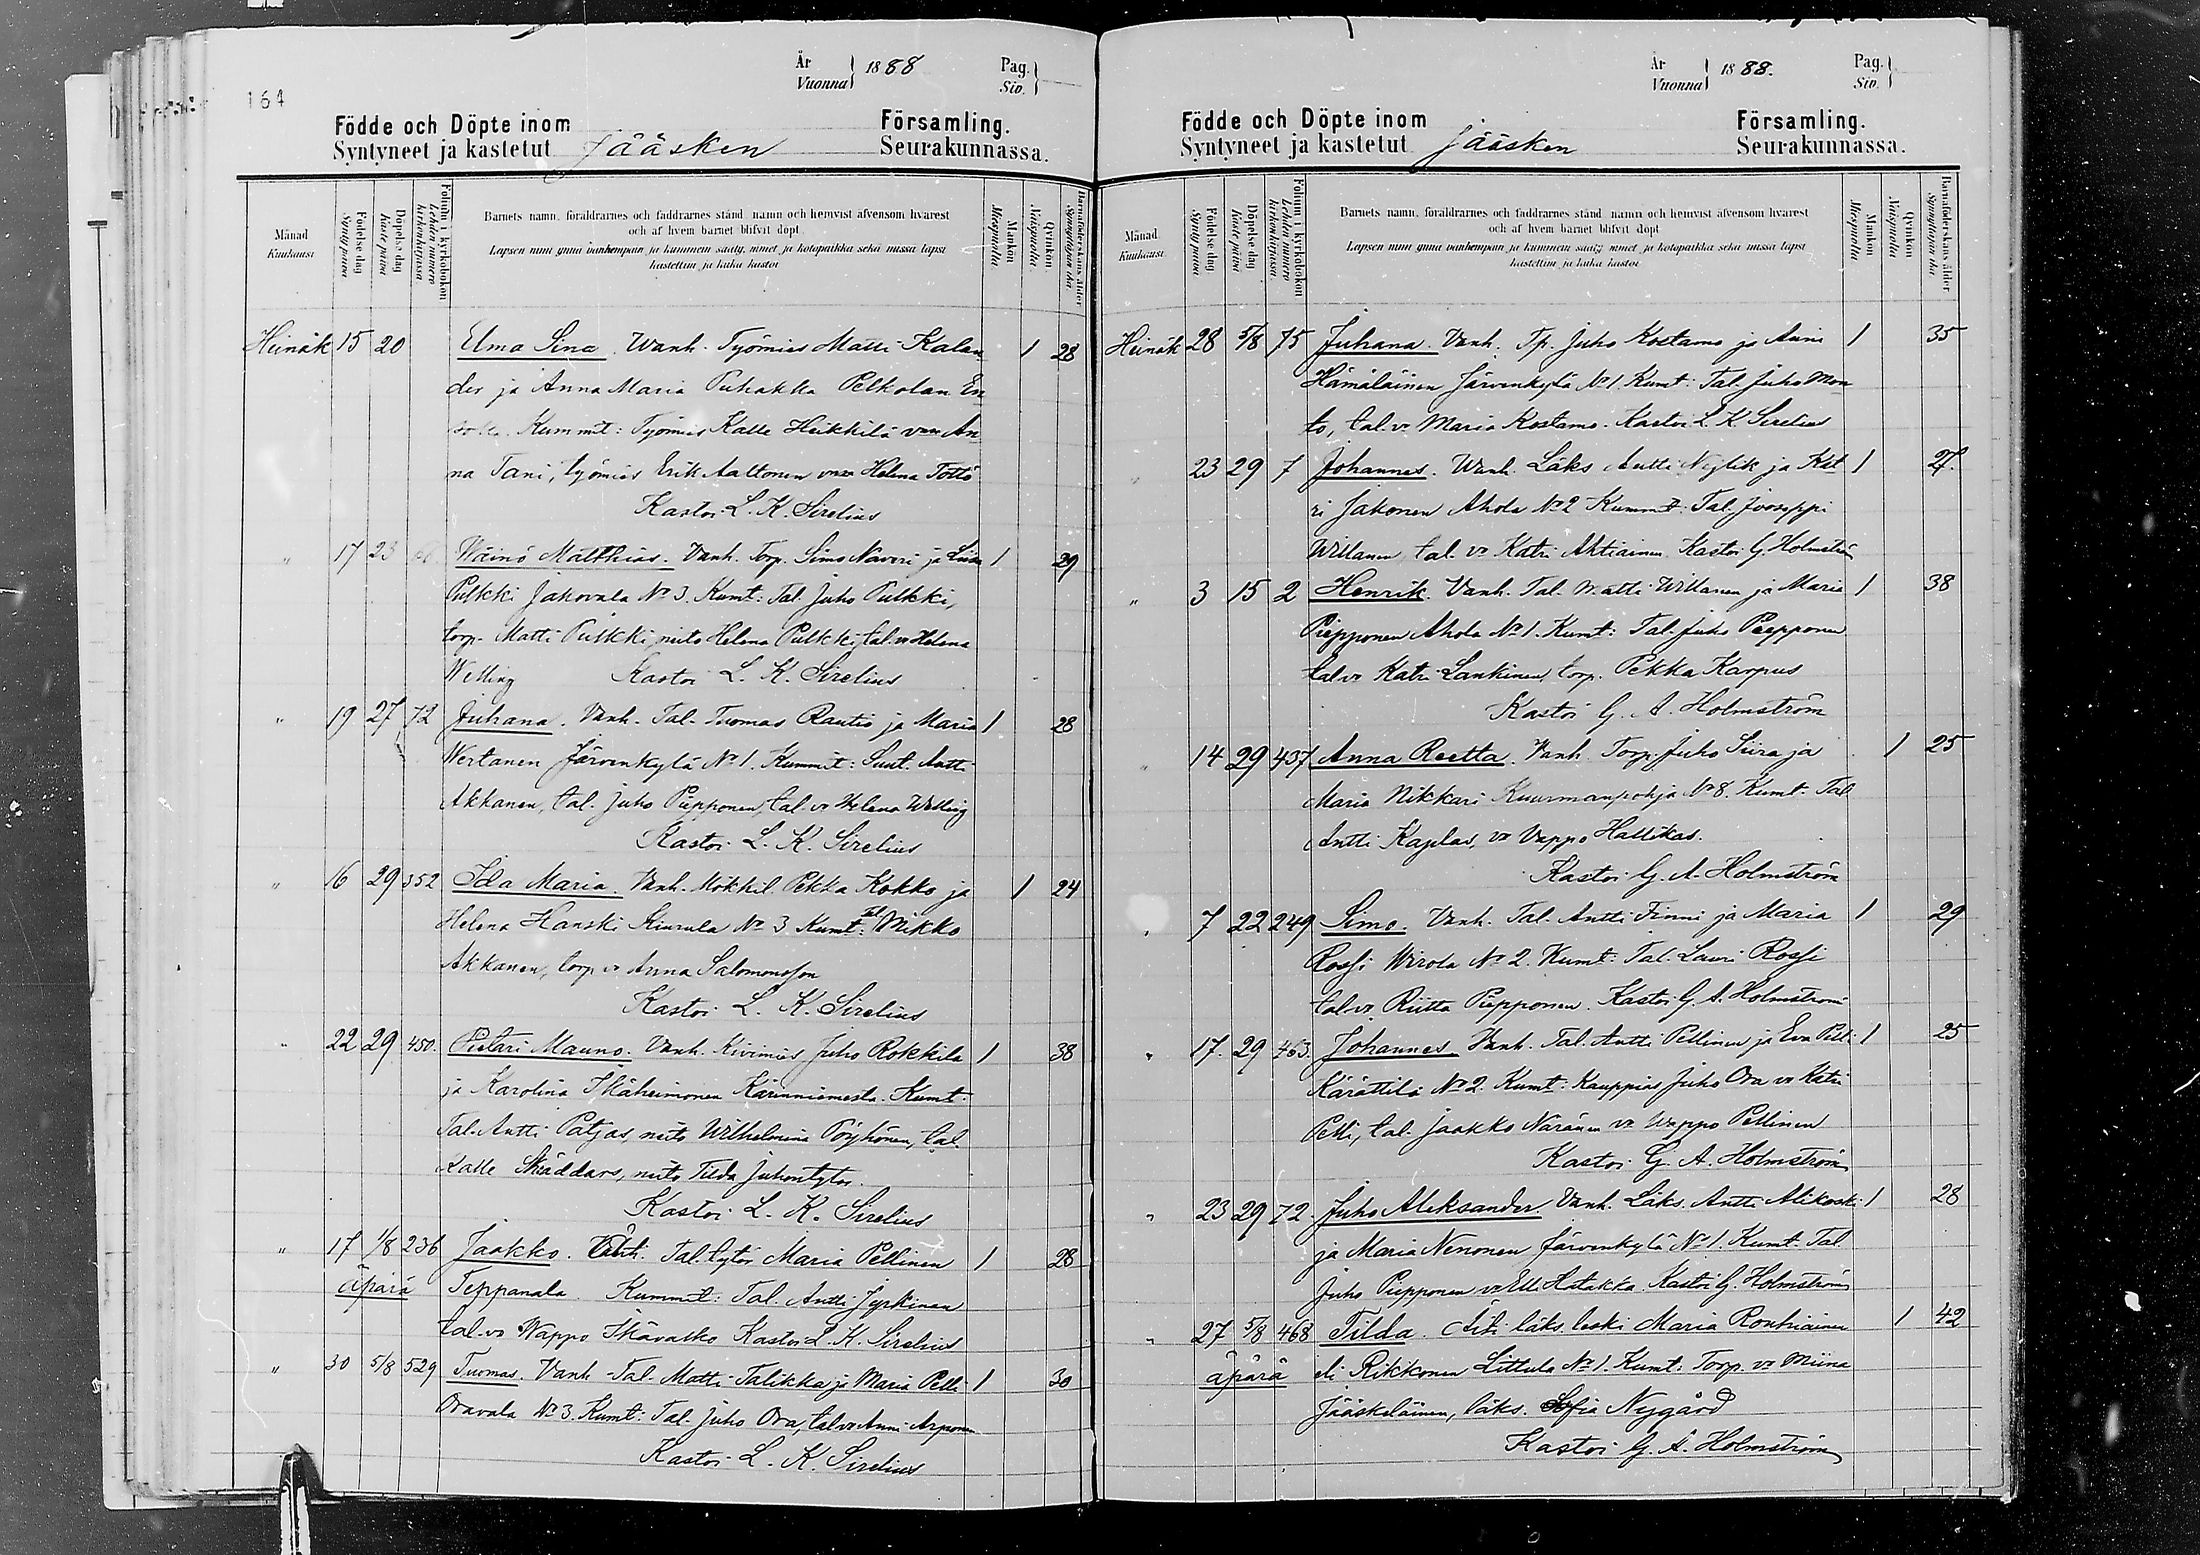 164
År
Vuonna } 1888
Pag.
Siv. }
Födde och Döpte inom Församling.
Syntyneet ja kastetut Jääsken Seurakunnassa.
Månad
Kuukausi
Födelse dag
Syntypäivä
Döpelse dag
Kastepäivä
Folium i kyrkoboken
Lehden numero kirkonkirjassa
Barnets namn, föräldrarnes och faddrarnes stånd, namn och hemvist äfvensom hvarest
och af hvem barnet blifvit döpt
Lapsen nimi ynnä vanhempain ja kummein sääty, nimet ja kotopaikka sekä missä lapsi
kastettiin ja kuka kastoi
Mankön
Miespuolia
Qvinkön
Naispuolia
Barnaföderskans ålder
Synnyttäjän ikä
Heinäk 15 20 Elma Sina. Wanh. Työmies Matti Kalan 1 28
der ja Anna Maria Puhakka Pelkolan En
Kummit: Työmies Kalle Heikkilä An
na Tani, työmies Erik Aaltonen Helena Töttö
Kastoi L. K. Sirelius
" 17 23 Wäinö Matthias. Vanh. Torp. Simo Naveri ja Liisa 1 29
Pulkki Jakovala No 3. Kumt: Tal. Juho Pulkki,
torp. Matti Pulkki, neito Helena Pulkki, tal. vo Helena
Welling Kastoi L. K. Sirelius
" 19 27 72 Juhana. Vanh. Tal. Tuomas Rautio ja Maria 1 28
Wertanen Järvenkylä No 1. Kummit: Suut. Antti
Akkanen, tal. Juho Piepponen, tal. vo Helena Welling
Kastoi L. K. Sirelius
" 16 29 352 Ida Maria. Vanh. Mökkil. Pekka Kokko ja 1 24
Helena Hanski Kiurula No 3 Kumt: Tal Mikko
Akkanen, torp. vo Anna Salomonsson
Kastoi L. K. Sirelius
" 22 29 450. Pietari Mauno. Vanh. Kivimies Juho Rokkila 1 38
ja Karolina Ikäheimonen Kärinniemestä. Kumt.
Tal. Antti Patjas, neito Wilhelmina Pöyhönen, tal.
Kalle Skräddars, neito Tilda Juhontytär.
Kastoi L. K. Sirelius
" 17 1/8 236 Jaakko. Äiti: Tal. tytär Maria Pellinen 1 28
äpärä Teppanala. Kummit: Tal. Antti Jyrkinen
tal. vo Wappo Ikävalko Kastoi L. K. Sirelius
" 30 5/8 529 Tuomas. Vanh. Tal. Matti Talikka ja Maria Pelli 1 30
Oravala No 3. Kumt: Tal. Juho Ora, tal. vo Anni Arponen
Kastoi L. K. Sirelius
År
Vuonna } 1888.
Pag.
Siv. }
Födde och Döpte inom Församling.
Syntyneet ja kastetut Jääsken Seurakunnassa.
Månad
Kuukausi
Födelse dag
Syntypäivä
Döpelse dag
Kastepäivä
Folium i kyrkoboken
Lehden numero kirkonkirjassa
Barnets namn, föräldrarnes och faddrarnes stånd, namn och hemvist äfvensom hvarest
och af hvem barnet blifvit döpt
Lapsen nimi ynnä vanhempain ja kummein sääty, nimet ja kotopaikka sekä missä lapsi
kastettiin ja kuka kastoi
Mankön
Miespuolia
Qvinkön
Naispuolia
Barnaföderskans ålder
Synnyttäjän ikä
Heinäk 28 5/8 75 Juhana. Vanh. Tp. Juho Kostamo ja Anni 1 35
Hämäläinen Järvenkylä No 1. Kumt: Tal. Juho Mon
to, tal. vo Maria Kostamo. Kastoi L. K. Sirelius
" 23 29 7 Johannes. Wanh. Läks Antti Nyglik ja Kat 1 27.
ri Jakonen Ahola No 2 Kummt: Tal. Jooseppi
Willanen tal. vo Katri Ahtiainen. Kastoi G. Holmström
" 3 15 2 Henrik. Vanh. Tal. Matti Willanen ja Maria 1 38
Piepponen Ahola No 1. Kumt: Tal. Juho Piepponen
tal. vo Katri Lankinen, torp. Pekka Karpus
Kastoi G. A. Holmström
" 14 29 437 Anna Reetta. Vanh. Torp. Juho Siira ja 1 25
Maria Nikkari Kuurmanpohja No 8. Kumt. Tal
Antti Kaplas, vo Vappo Hallikas.
Kastoi G. A. Holmström
" 7 22 249 Simo. Vanh. Tal. Antti Finni ja Maria 1 29
Rossi Wirola No 2. Kumt: Tal. Lauri Rossi
tal. vo Riitta Piepponen. Kastoi G. A. Holmström
" 17. 29 463. Johannes. Vanh. Tal. Antti Pellinen ja Eva Pelli 1 25
Kärättilä No 2. Kumt: Kauppias Juho Ora vo Katri
Pelli, tal. Jaakko Näränen vo Wappo Pellinen
Kastoi G. A. Holmström
" 23 29 72 Juho Aleksander Vanh. Läks. Antti Alikoski 1 28
ja Maria Nenonen Järvenkylä No 1. Kumt. Tal.
Juho Piepponen vo Elli Hatakka. Kastoi G. Holmström
" 27 5/8 468 Tilda. Äiti läks. leski Maria Ronkiainen 1 42
äpärä eli Rikkonen Littula No 1. Kumt: Torp. vo Miina
Jääskeläinen, läks. Sofia Nygård
Kastoi G. A. Holmström